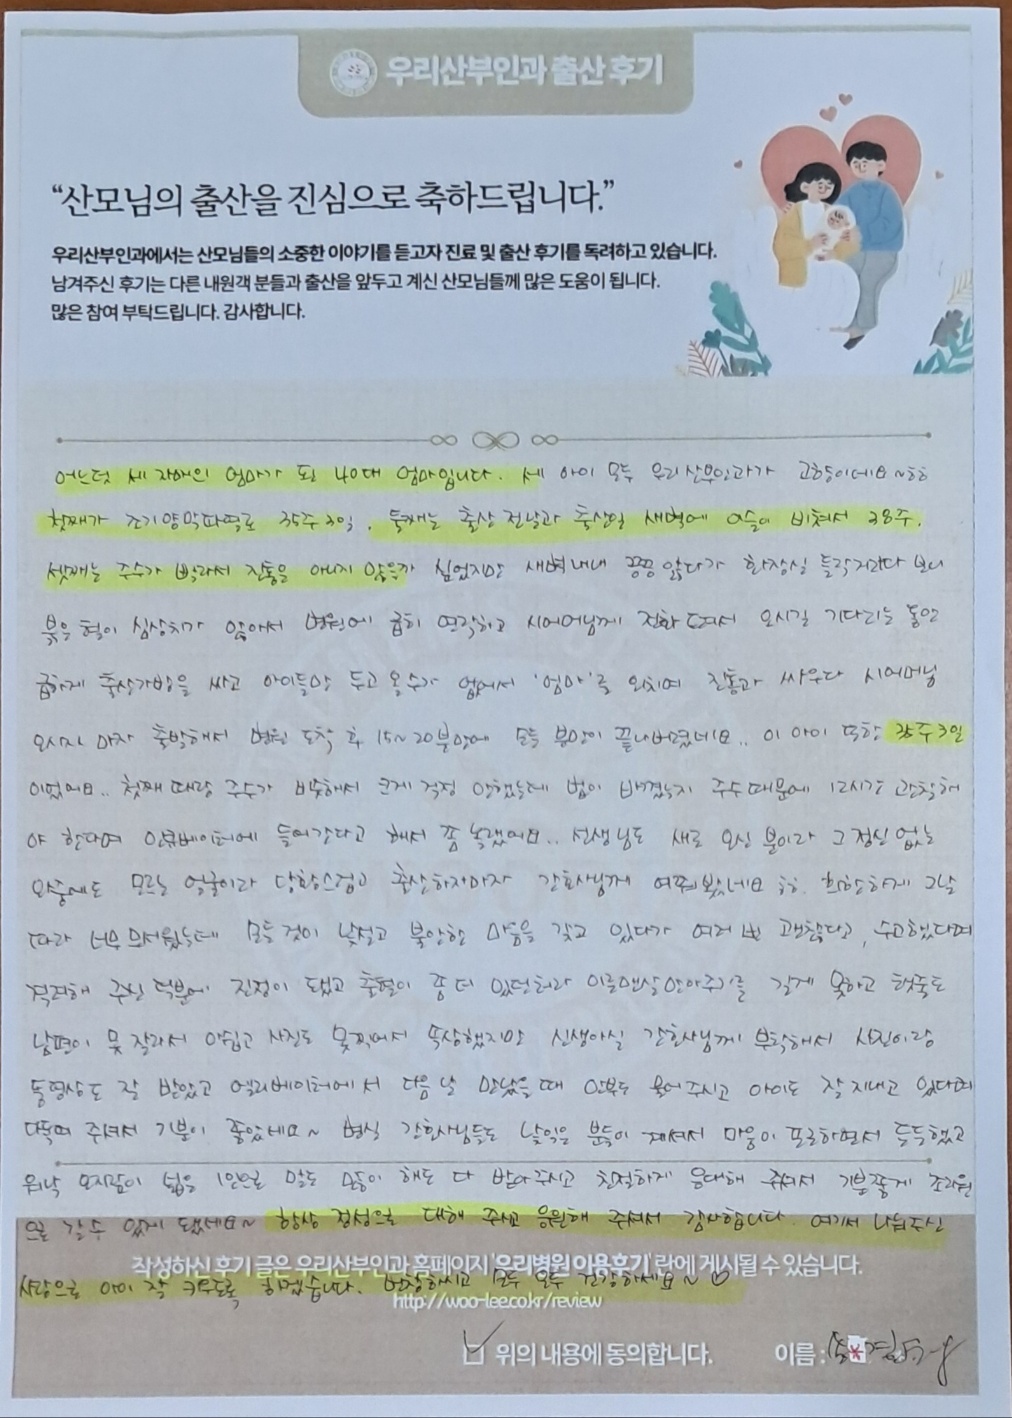 우리산부인과 출산 후기
“산모님의 출산을 진심으로 축하드립니다.”
우리산부인과에서는 산모님들의 소중한 이야기를 듣고자 진료 및 출산 후기를 독려하고 있습니다.
남겨주신 후기는 다른 내원객 분들과 출산을 앞두고 계신 산모님들께 많은 도움이 됩니다.
많은 참여 부탁드립니다. 감사합니다.
어느덧 세 자매의 엄마가 된 40대 엄마입니다. 세 아이 모두 우리산부인과가 고향이네요~ㅎㅎ
첫째가 조기양막파열로 35주 3일, 둘째는 출산 전날과 출산일 새벽에 이슬이 비쳐서 38주.
셋째는 주수가 빨라서 진통은 아니지 않을까 싶었지만 새벽내내 끙끙 앓다가 화장실 들락거리다 보니
붉은 혈이 심상치가 않아서 병원에 급히 연락하고 시어머님께 전화드려서 오시길 기다리는 동안
급하게 출산가방을 싸고 아이들만 두고 올수가 없어서 '엄마'를 외치며 진통과 싸우다 시어머님
오시자 마자 출발해서 병원 도착 후 15~20분만에 모든 분만이 끝나버렸네요.. 이 아이 또한 35주 3일
이었어요.. 첫째 때랑 주수가 비슷해서 크게 걱정 안했는데 법이 바뀌었는지 주수 때문에 12시간 관찰해
야 한다며 인큐베이터에 들어간다고 해서 쫌 놀랬어요.. 선생님도 새로 오신 분이라 그 정신없는
와중에도 모르는 얼굴이라 당황스럽고 출산하자마자 간호사님께 여쭤봤네요 ㅎㅎ. 희한하게 그날
따라 너무 무서웠는데 모든 것이 낯설고 불안한 마음을 갖고 있다가 여러 번 괜찮다고, 수고했다며
격려해 주신 덕분에 진정이 됐고 출혈이 좀 더 있던터라 를 길게 못하고 탯줄도
남편이 못 잘라서 아쉽고 사진도 못찍어서 속상했지만 신생아실 간호사님께 부탁해서 사진이랑
동영상도 잘 받았고 엘리베이터에서 다음 날 만났을 때 안부도 물어주시고 아이도 잘 지내고 있다며
다독여 주셔서 기분이 좋았네요~ 병실 간호사님들도 낯익은 분들이 계셔서 마음이 포근하면서 든든했고
워낙 오지랖이 넓은 1인으로 말도 많이 해도 다 받아주시고 친절하게 응대해 주셔서 기분좋게 조리원
으로 갈 수 있게 됐네요~ 항상 정성으로 대해 주시고 응원해 주셔서 감사합니다. 여기서 나눠주신
작성하신 후기 글은 우리산부인과 홈페이지 '우리병원 이용후기' 란에 게시될 수 있습니다.
사랑으로 아이 잘 키우도록 하겠습니다. 번창하시고 모두 모두 건강하세요~ ♡
http://woo-lee.co.kr/review
위의 내용에 동의합니다. 이름 :